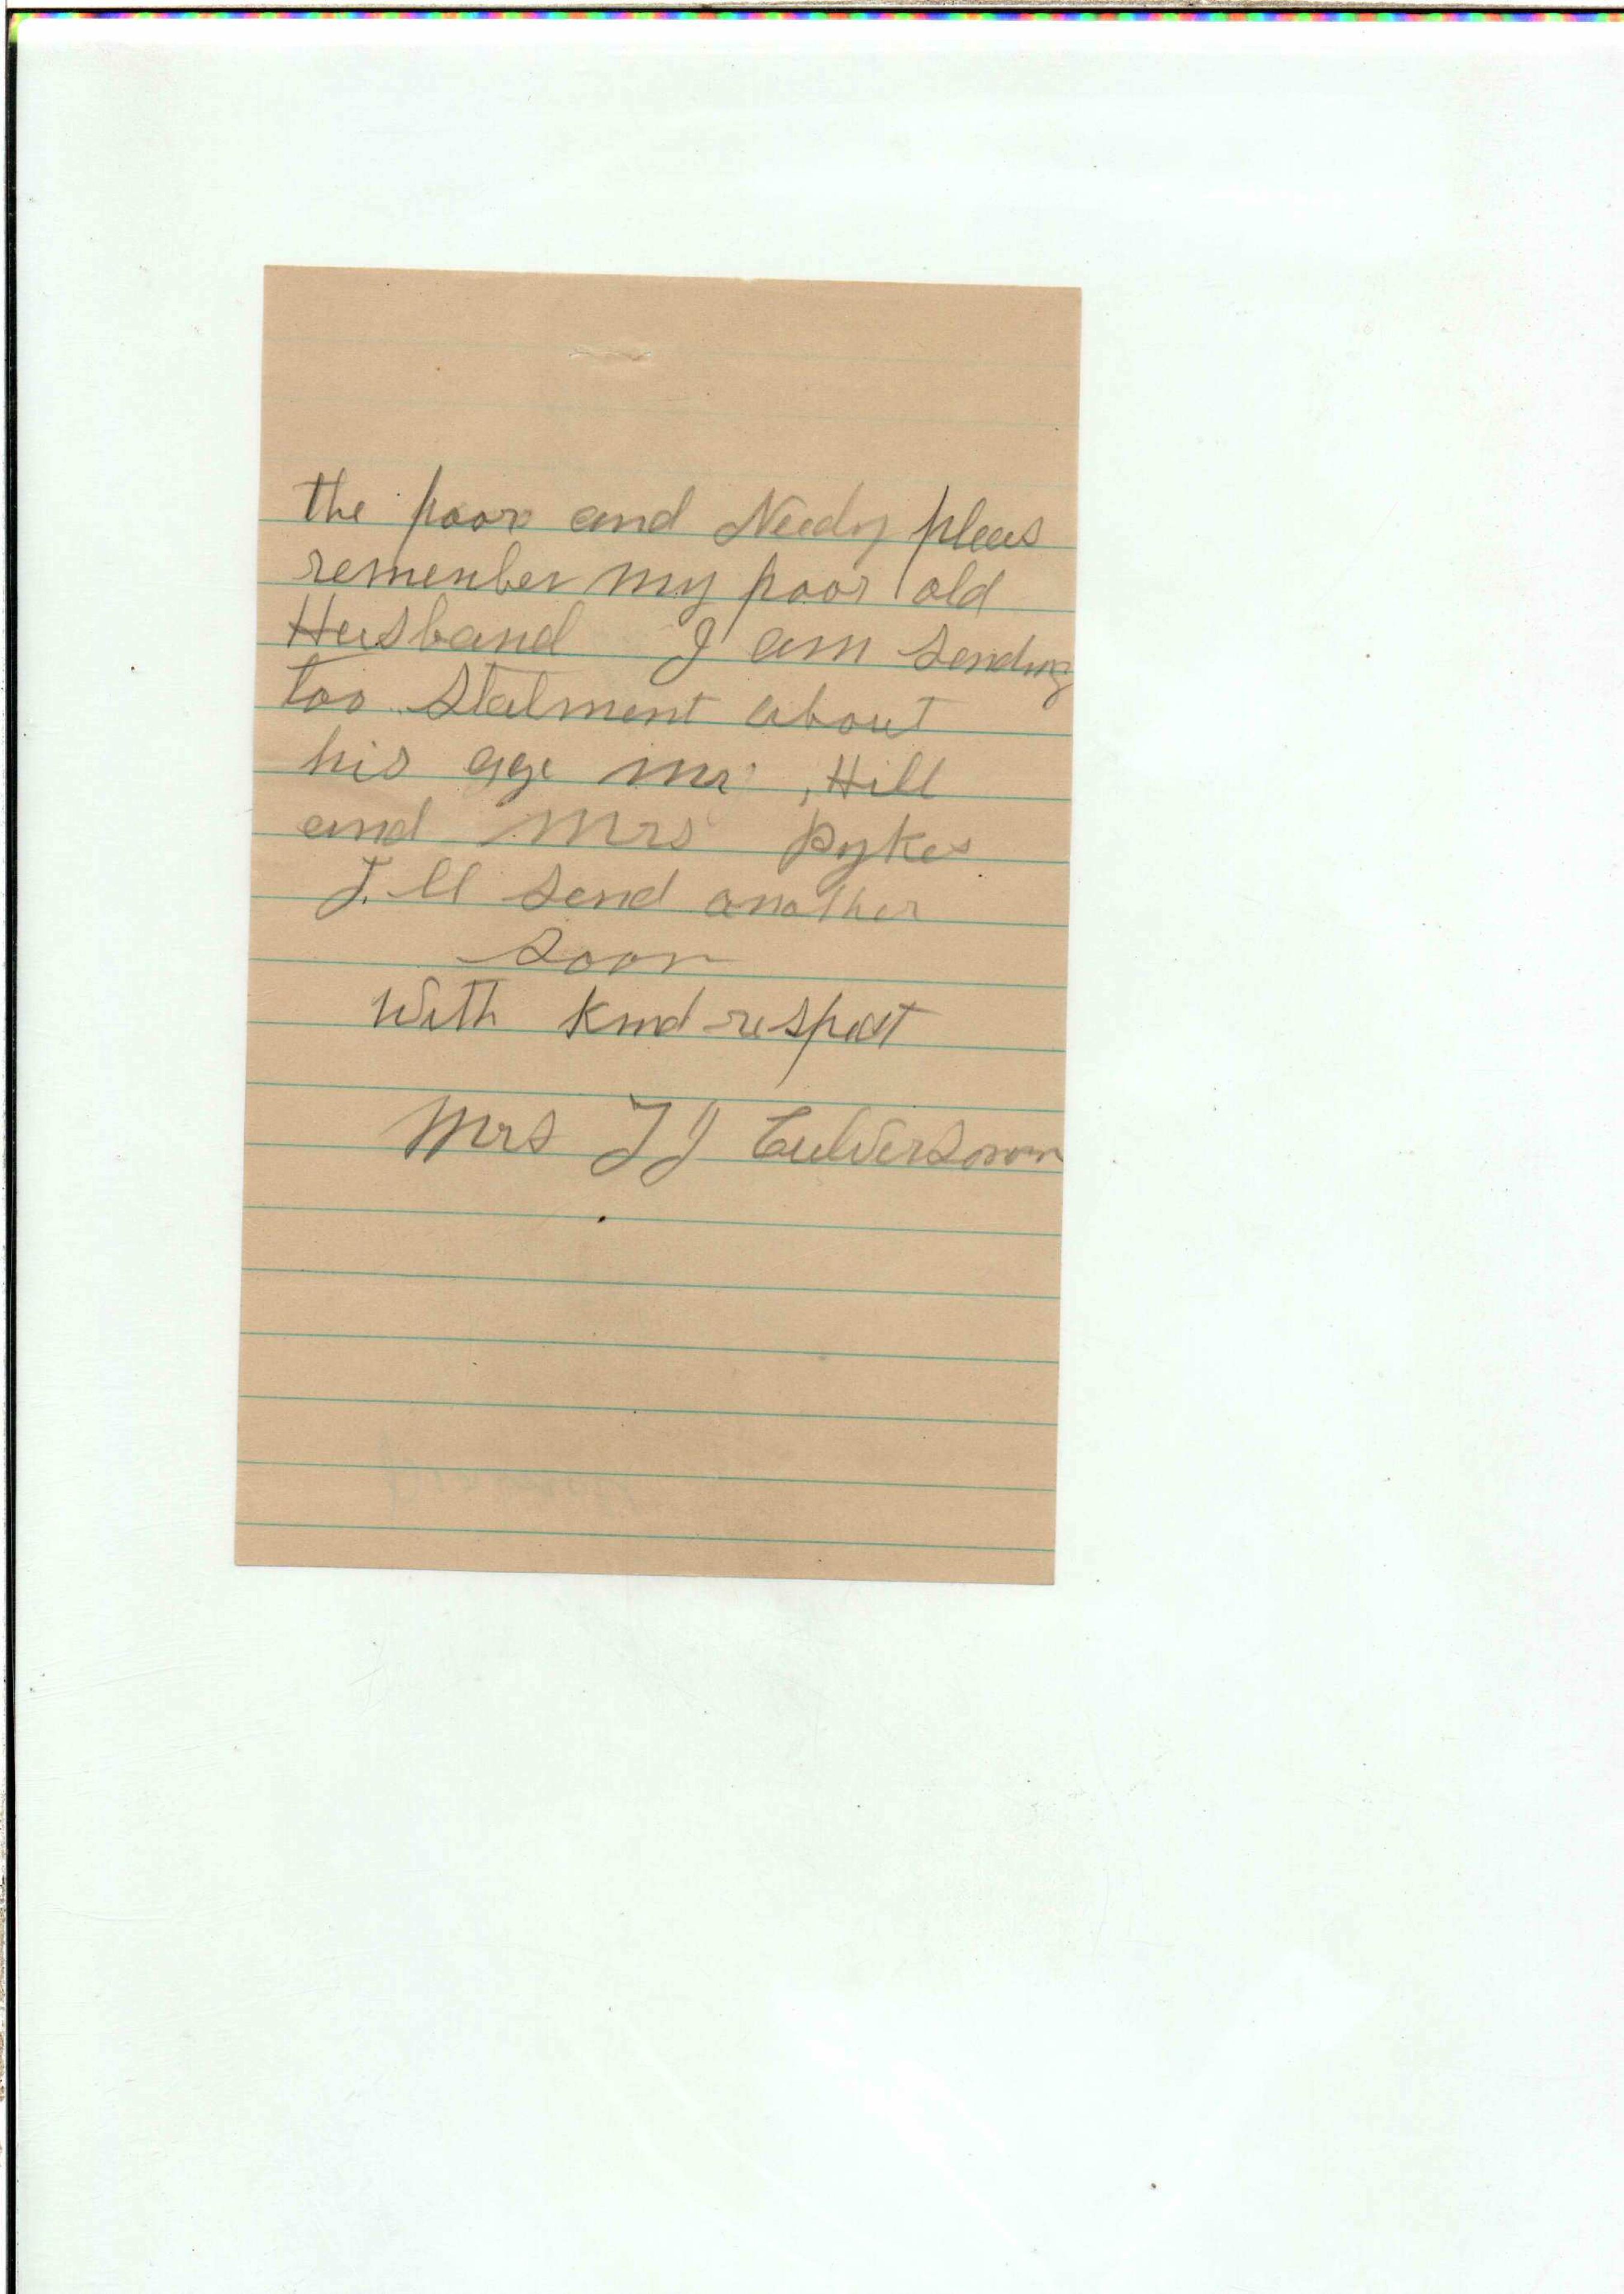 the poor and Needy pleas
remember my poor old
Husband I am sending
too Statment about
his age Mr, Hill
and Mrs Pykes
I.ll send another
soon
With kind respect
Mrs J J Culverson